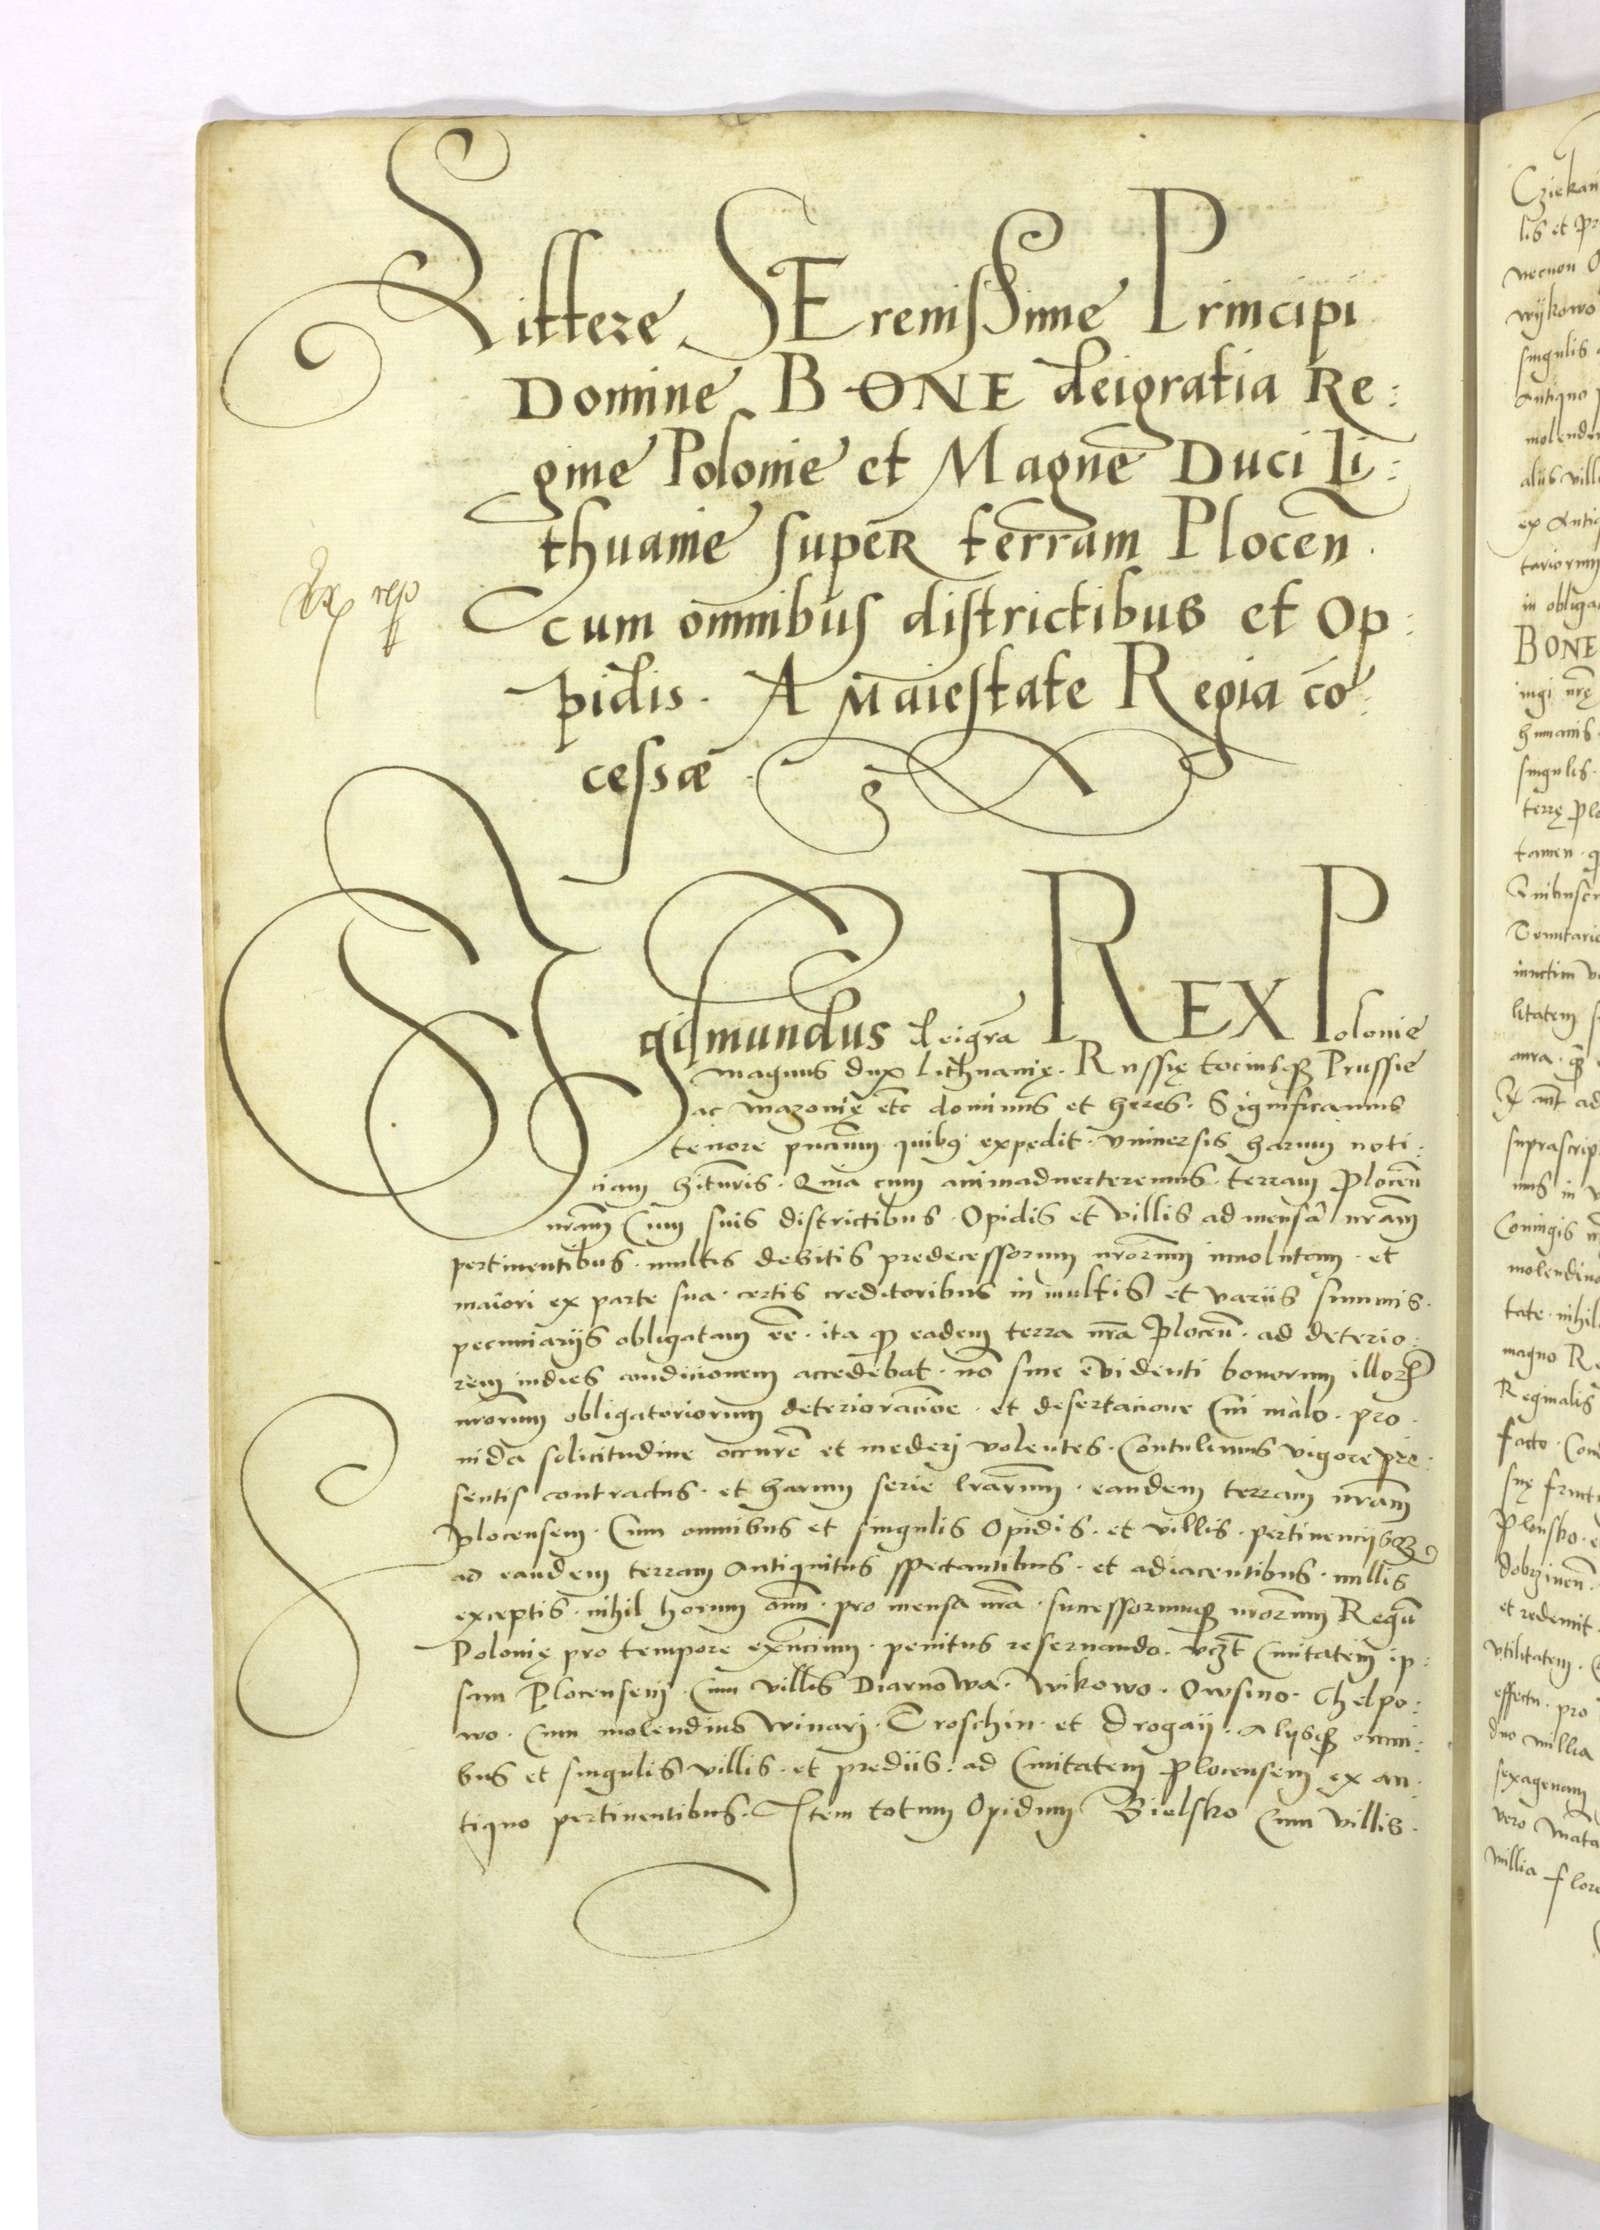 Littere SEreniſsime Principi
Domine BONE deigratia Re:
gine Polonie et Magne Duci Li:
thuanie ſuper terram Plocen̄.
cum omnibus diſtrictibus et Op:
pidis. A Maieſtate Regia cō:
ceſsæ.
Sigiſmundus deigr̄a REX Polonie
magnus dux Lithuanię. Ruſsię tociusq̃ Pruſsie
ac Mazovie etc̄ dominus et heres. Significamus
tenore pn̄cium quibus expedit vniuersis harum noti:
ciam hītturis. Quia cum animaduerteremus terram Plocen̄
nr̄am Cum suis districtibus. Opidis et villis ad mensā nr̄am
pertinentibus. multis debitis predecessorum nr̄orum inuolutam. et
maiori ex parte sua. certis creditoribus in multis et variis summis.
pecuniariis obligatam eē. ita q̃ eadem terra nr̄a Plocen̄. ad deterio:
rem indies condicionem accedebat. nō sine evidenti bonorum illorꝝ
nr̄orum obligatoriorum deterioracione. et desertacione Cui malo. pro
uida solicitudine occurre͂ et mederj volentes. Contulimus vigore pre:
sentis contractus. et harum serie lr̄arum. eandem terram nr̄am
Plocensem. Cum omnibus et singulis Opidis. et villis. pertinenciisq̃
ad eandem terram antiquitus spectantibus. et adiacentibus. nullis
exceptis. nihil horum om̄. pro mensa nr̄a. successorumq̃ nr̄orum Regū
Polonię pro tempore exn̄cium. penitus reservando. vcꝫt Ciuitatem ip:
sam Plocensem. Cum villis Diarnowa. Wikowo. Owsino. Chelpo:
wo. Cum molendinis Winarj. Troschin. et Drogaij. Aliisq̃ omni:
bus et singulis villis. et prediis. ad Ciuitatem Plocensem ex an:
tiquo pertinentibus. Item totum Opidum Bielsko Cum villis.
Cziekan
lis et pr
necnon O
wijkowo
singulis
antiquo p
molendi
aliis vill
ex Antiq
tariorum
in obliga
BONE
ingi nr̄ę
humanis
singulis
terrę Plo
tamen. q
Quibusc
Tenutari
iunctim v
litatem s
aura. q̃
suprascrip
nus in v
Coniugis n
molendino
tate. nihil
magno R
Reginalis
facto. Con
suę fruct
Plonsko. e
dobrzinen̄
et redemit
vtilitatem.
effectu. pro
duo millia
sexagenam
vero Mata
millia flore